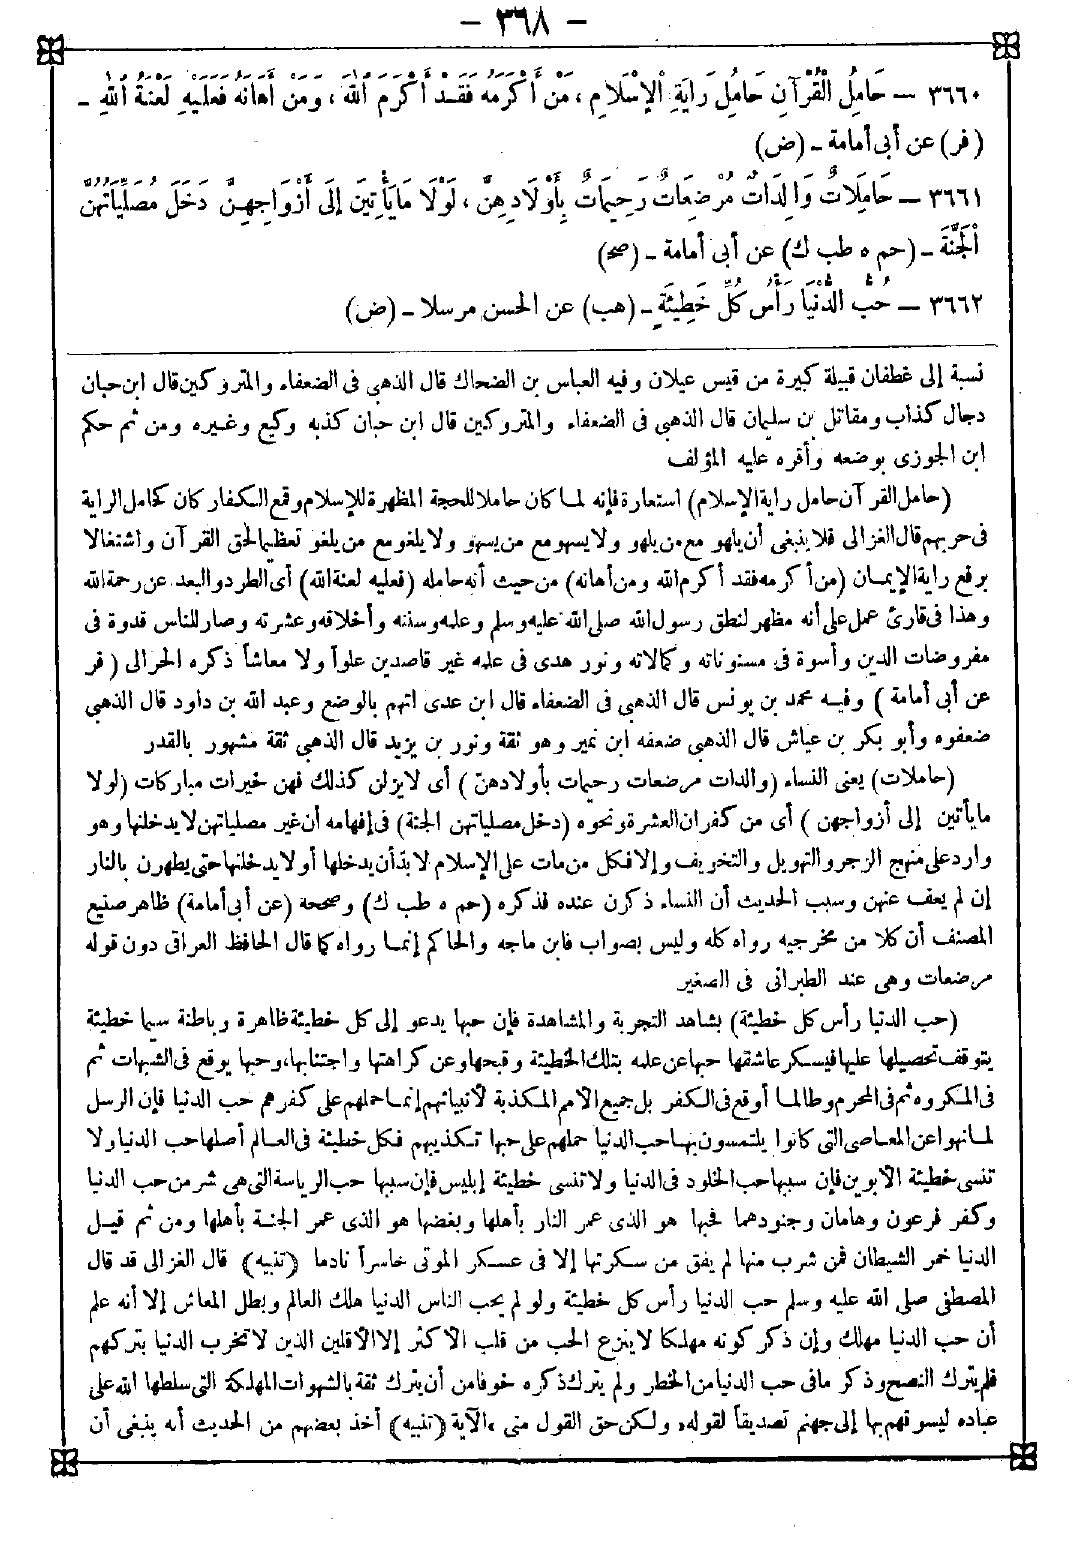 - ٣٦٨ -
٣٦٦٠ — حَامِلُ الْقُرْآنِ حَامِلُ رَايَةِ الْإِسْلَامِ، مَنْ أَكْرَمَهُ فَقَدْ أَكْرَمَ اللهَ، وَمَنْ أَهَانَهُ فَعَلَيْهِ لَعْنَةُ اللهِ -
(فر) عن أبى أمامة - (ض)
٣٦٦١ — حَامِلَاتٌ وَالِدَاتٌ مُرْضِعَاتٌ رَحِيمَاتٌ بِأَوْلَادِهِنَّ، لَوْلَا مَا يَأْتِينَ إِلَى أَزْوَاجِهِنَّ دَخَلَ مُصَلِّيَاتُهُنَّ
الْجَنَّةَ - (حم ه طب ك) عن أبى أمامة - (صح)
٣٦٦٢ — حُبُّ الدُّنْيَا رَأْسُ كُلِّ خَطِيئَةٍ - (هب) عن الحسن مرسلا - (ض)
نسبة إلى غطفان قبيلة كبيرة من قيس عيلان وفيه العباس بن الضحاك قال الذهبى فى الضعفاء والمتروكين قال ابن حبان
دجال كذاب ومقاتل بن سليمان قال الذهبى فى الضعفاء والمتروكين قال ابن حبان كذبه وكيع وغيره ومن ثم حكم
ابن الجوزى بوضعه وأقره عليه المؤلف
(حامل القرآن حامل راية الإسلام) استعارة فإنه لما كان حاملا للحجة المظهرة للإسلام وقمع الكفار كان كحامل الراية
فى حربهم قال الغزالى فلا ينبغى أن يلهو مع من يلهو ولا يسهو مع من يسهو ولا يلغو مع من يلغو تعظيما لحق القرآن واشتغالا
برفع راية الإيمان (من أكرمه فقد أكرم الله ومن أهانه) من حيث أنه حامله (فعليه لعنة الله) أى الطرد والبعد عن رحمة الله
وهذا فى قارئ عمل على أنه مظهر لنطق رسول الله صلى الله عليه وسلم وعلمه وسننه وأخلاقه وعشرته وصار للناس قدوة فى
مفروضات الدين وأسوة فى مسنوناته وكمالاته ونور هدى فى علمه غير قاصدين علوا ولا معاشاً ذكره الحرالى (فر
عن أبى أمامة) وفيه محمد بن يونس قال الذهبى فى الضعفاء قال ابن عدى اتهم بالوضع وعبد الله بن داود قال الذهبى
ضعفوه وأبو بكر بن عياش قال الذهبى ضعفه ابن نمير وهو ثقة ونور بن يزيد قال الذهبى ثقة مشهور بالقدر
(حاملات) يعنى النساء (والدات مرضعات رحيمات بأولادهن) أى لا يزلن كذلك فهن خيرات مباركات (لولا
ما يأتين إلى أزواجهن) أى من كفران العشرة ونحوه (دخل مصلياتهن الجنة) فى إفهامه أن غير مصلياتهن لا يدخلنها وهو
وارد على منهج الزجر والتهويل والتخويف وإلا فكل من مات على الإسلام لابد أن يدخلها أو لا يدخلنها حتى يطهرن بالنار
إن لم يعف عنهن وسبب الحديث أن النساء ذكرن عنده فذكره (حم ه طب ك) وصححه (عن أبى أمامة) ظاهر صنيع
المصنف أن كلا من مخرجيه رواه كله وليس بصواب فابن ماجه والحاكم إنما رواه كما قال الحافظ العراقى دون قوله
مرضعات وهى عند الطبرانى فى الصغير
(حب الدنيا رأس كل خطيئة) بشاهد التجربة والمشاهدة فإن حبها يدعو إلى كل خطيئة ظاهرة وباطنة سيما خطيئة
يتوقف تحصيلها عليها فيسكر عاشقها حبها عن علمه بتلك الخطيئة وقبحها وعن كراهتها واجتنابها، وحبها يوقع فى الشبهات ثم
فى المكروه ثم فى المحرم وطالما أوقع فى الكفر بل جميع الأمم المكذبة لأنبيائهم إنما حملهم على كفرهم حب الدنيا فإن الرسل
لما نهوا عن المعاصى التى كانوا يلتمسون بها حب الدنيا حملهم على حبها تكذيبهم فكل خطيئة فى العالم أصلها حب الدنيا ولا
تنسى خطيئة الأبوين فإن سببها حب الخلود فى الدنيا ولا تنسى خطيئة إبليس فإن سببها حب الرياسة التى هى شر من حب الدنيا
وكفر فرعون وهامان وجنودهما فحبها هو الذى عمر النار بأهلها وبغضها هو الذى عمر الجنة بأهلها ومن ثم قيل
الدنيا خمر الشيطان فمن شرب منها لم يفق من سكرتها إلا فى عسكر الموتى خاسراً نادما (تنبيه) قال الغزالى قد قال
المصطفى صلى الله عليه وسلم حب الدنيا رأس كل خطيئة ولو لم يحب الناس الدنيا هلك العالم وبطل المعاش إلا أنه علم
أن حب الدنيا مهلك وإن ذكر كونه مهلكا لا ينزع الحب من قلب الأكثر إلا الأقلين الذين لا تخرب الدنيا بتركهم
فلم يترك النصح وذكر ما فى حب الدنيا من الخطر ولم يترك ذكره خوفا من أن يترك ثقة بالشهوات المهلكة التى سلطها الله على
عباده ليسوقهم بها إلى جهنم تصديقاً لقوله، ولكن حق القول منى، الآية (تنبيه) أخذ بعضهم من الحديث أنه ينبغى أن